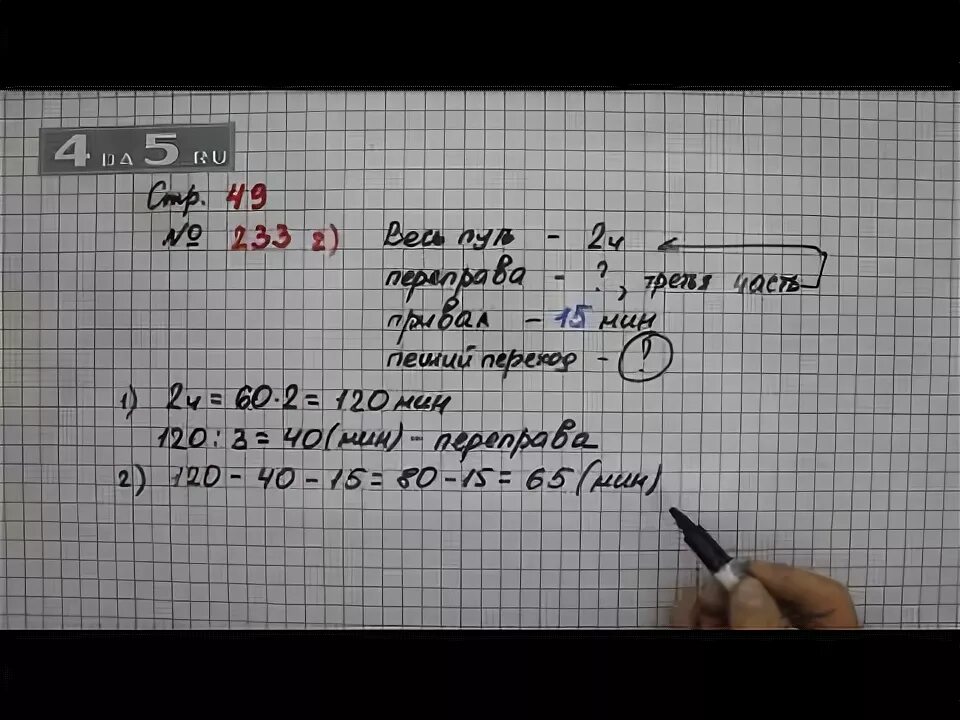 4 DA 5 .RU
Стр. 49
№ 233 г)
Весь путь - 2ч
переправа - ?, третья часть
привал - 15 мин
пеший переход - ?
1) 2ч = 60·2 = 120 мин
120 : 3 = 40 (мин) - переправа
2) 120 - 40 - 15 = 80 - 15 = 65 (мин)